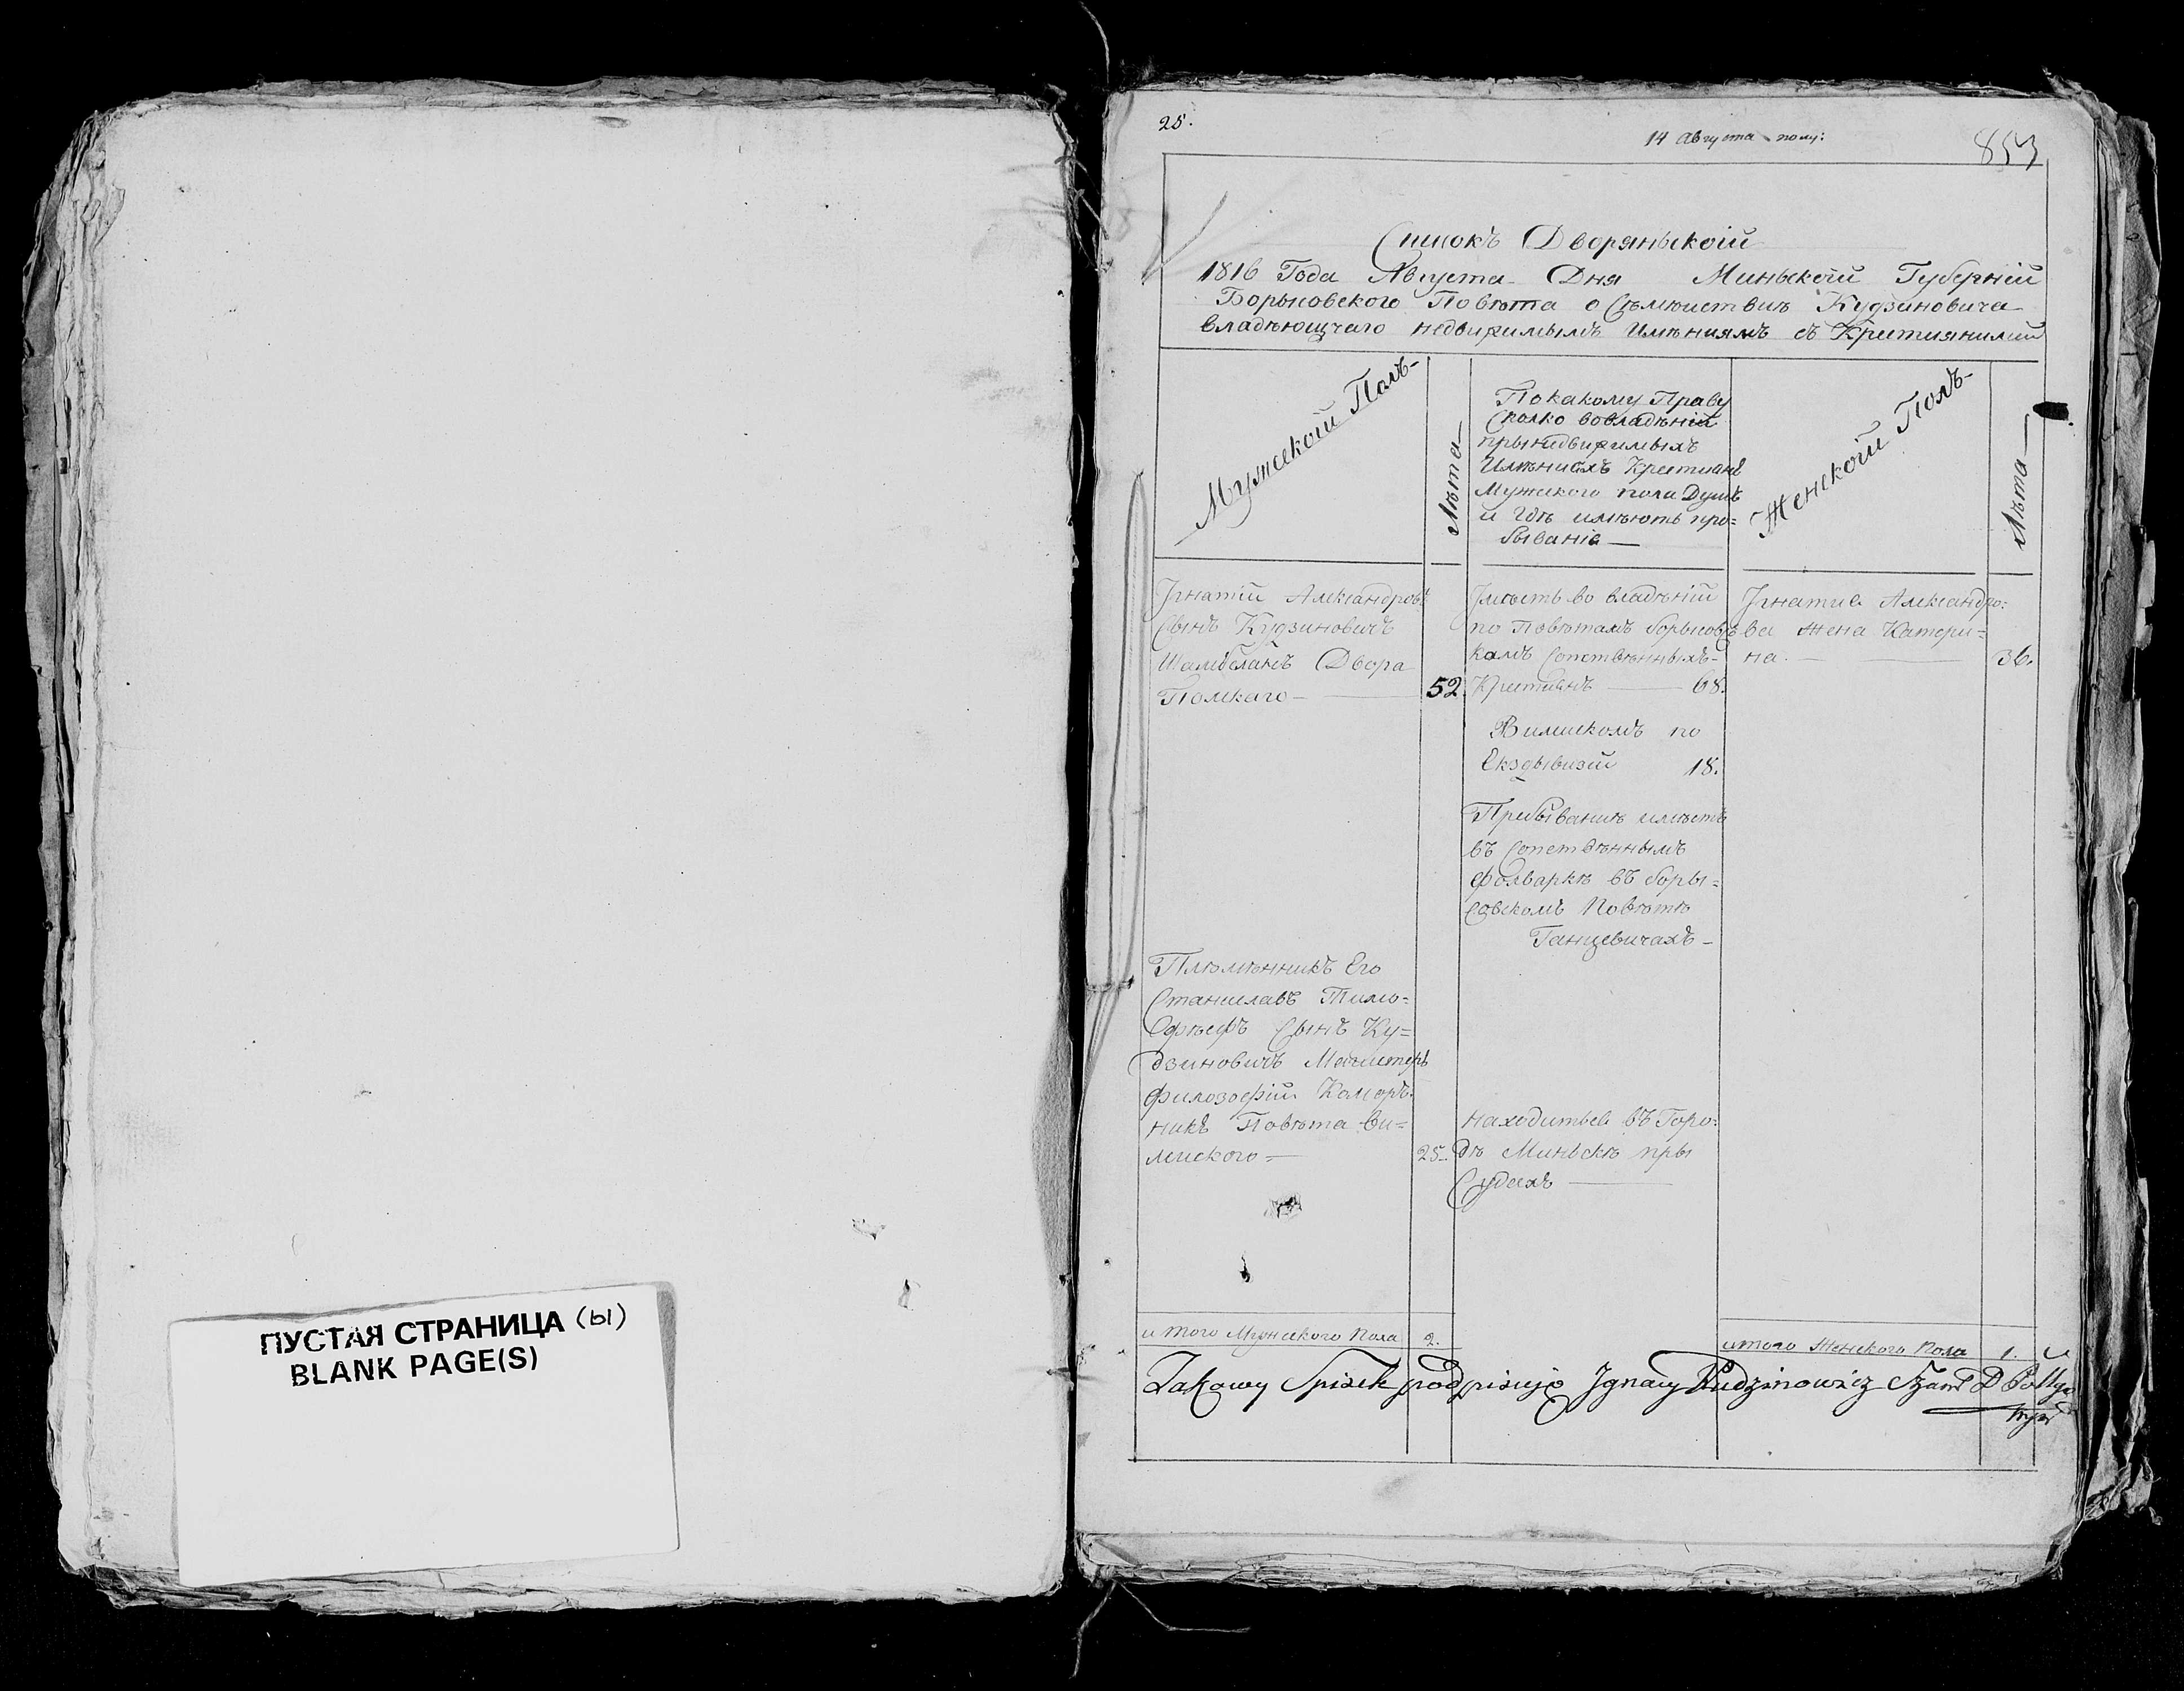 ПУСТАЯ СТРАНИЦА (ы)
BLANK PAGE(S)
25.
14 Августа полу:
853
Списокъ Дворяньскоій
1816 Года Августа Дня Миньскоій Губерній
Борысовского Повѣта о Съмѣиствиѣ Кудзиновича
владѣющчаго недвижимымъ Имѣниямъ съ Крестиянимий
Мужскоій Полъ-
Лѣта-
Покакому Праву
Сколко вовладѣній
прынедвижимыхъ
Имѣниахъ Крестианъ
Мужского пола Душъ
и Гдѣ имѣютъ про=
быванiе —
Женскоій Полъ-
Лѣта —
Игнатій Александровъ
Сынъ Кудзиновичъ
Шамбеланъ Двора
Полскаго — 52.
Имѣетъ во владѣній
по Повѣтамъ Борысовъ
камъ Сопствѣнныхъ-
Крестианъ — 68.
Вилискомъ по
Екздывизій 18.
Пребываниѣ имѣетъ
въ Сопствѣннымъ
Фолваркѣ въ Боры=
совскомъ Повѣтѣ
Ганцевичахъ-
Игнатиа Александро:
ва Жена Катери=
на. — 36.
Плѣмѣнникъ Его
Станиславъ Тимо=
Офѣефъ Сынъ Ку=
дзиновичъ Магистеръ
Филозофій Каморъ:
никъ Повѣта Ви=
лиского= 25.
находитьса въ Горо:
дѣ Миньскѣ пры
Судахъ —
итого Мужского Пола 2.
итого Женского Пола 1.
Takowy Spisek podpisuję Ignacy Kudzinowicz Szam D Pollgo